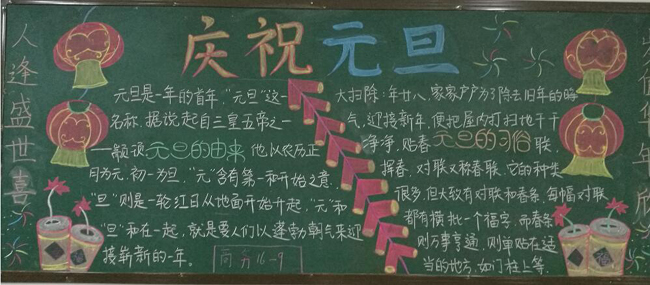 庆祝元旦
人逢盛世喜
元旦是一年的首年,“元旦”这一
名称,据说起自三皇五帝之一
——颛顼 元旦的由来 他以农历正
月为元,初一为旦,“元”含有第一和开始之意,
“旦”则是一轮红日从地面开始升起,“元”和
“旦”和在一起,就是要人们以蓬勃朝气来迎
接崭新的一年。
大扫除:年廿八,家家户户为了除去旧年的晦
气,迎接新年,便把屋内打扫地干干
净净,贴春 元旦的习俗 联,
挥春,对联又称春联,它的种类
很多,但大致有对联和春条,每幅对联
都有横批一个福字,而春条
则万事亨通,则单贴在适
当的地方,如门柱上等。
16-9
年欣